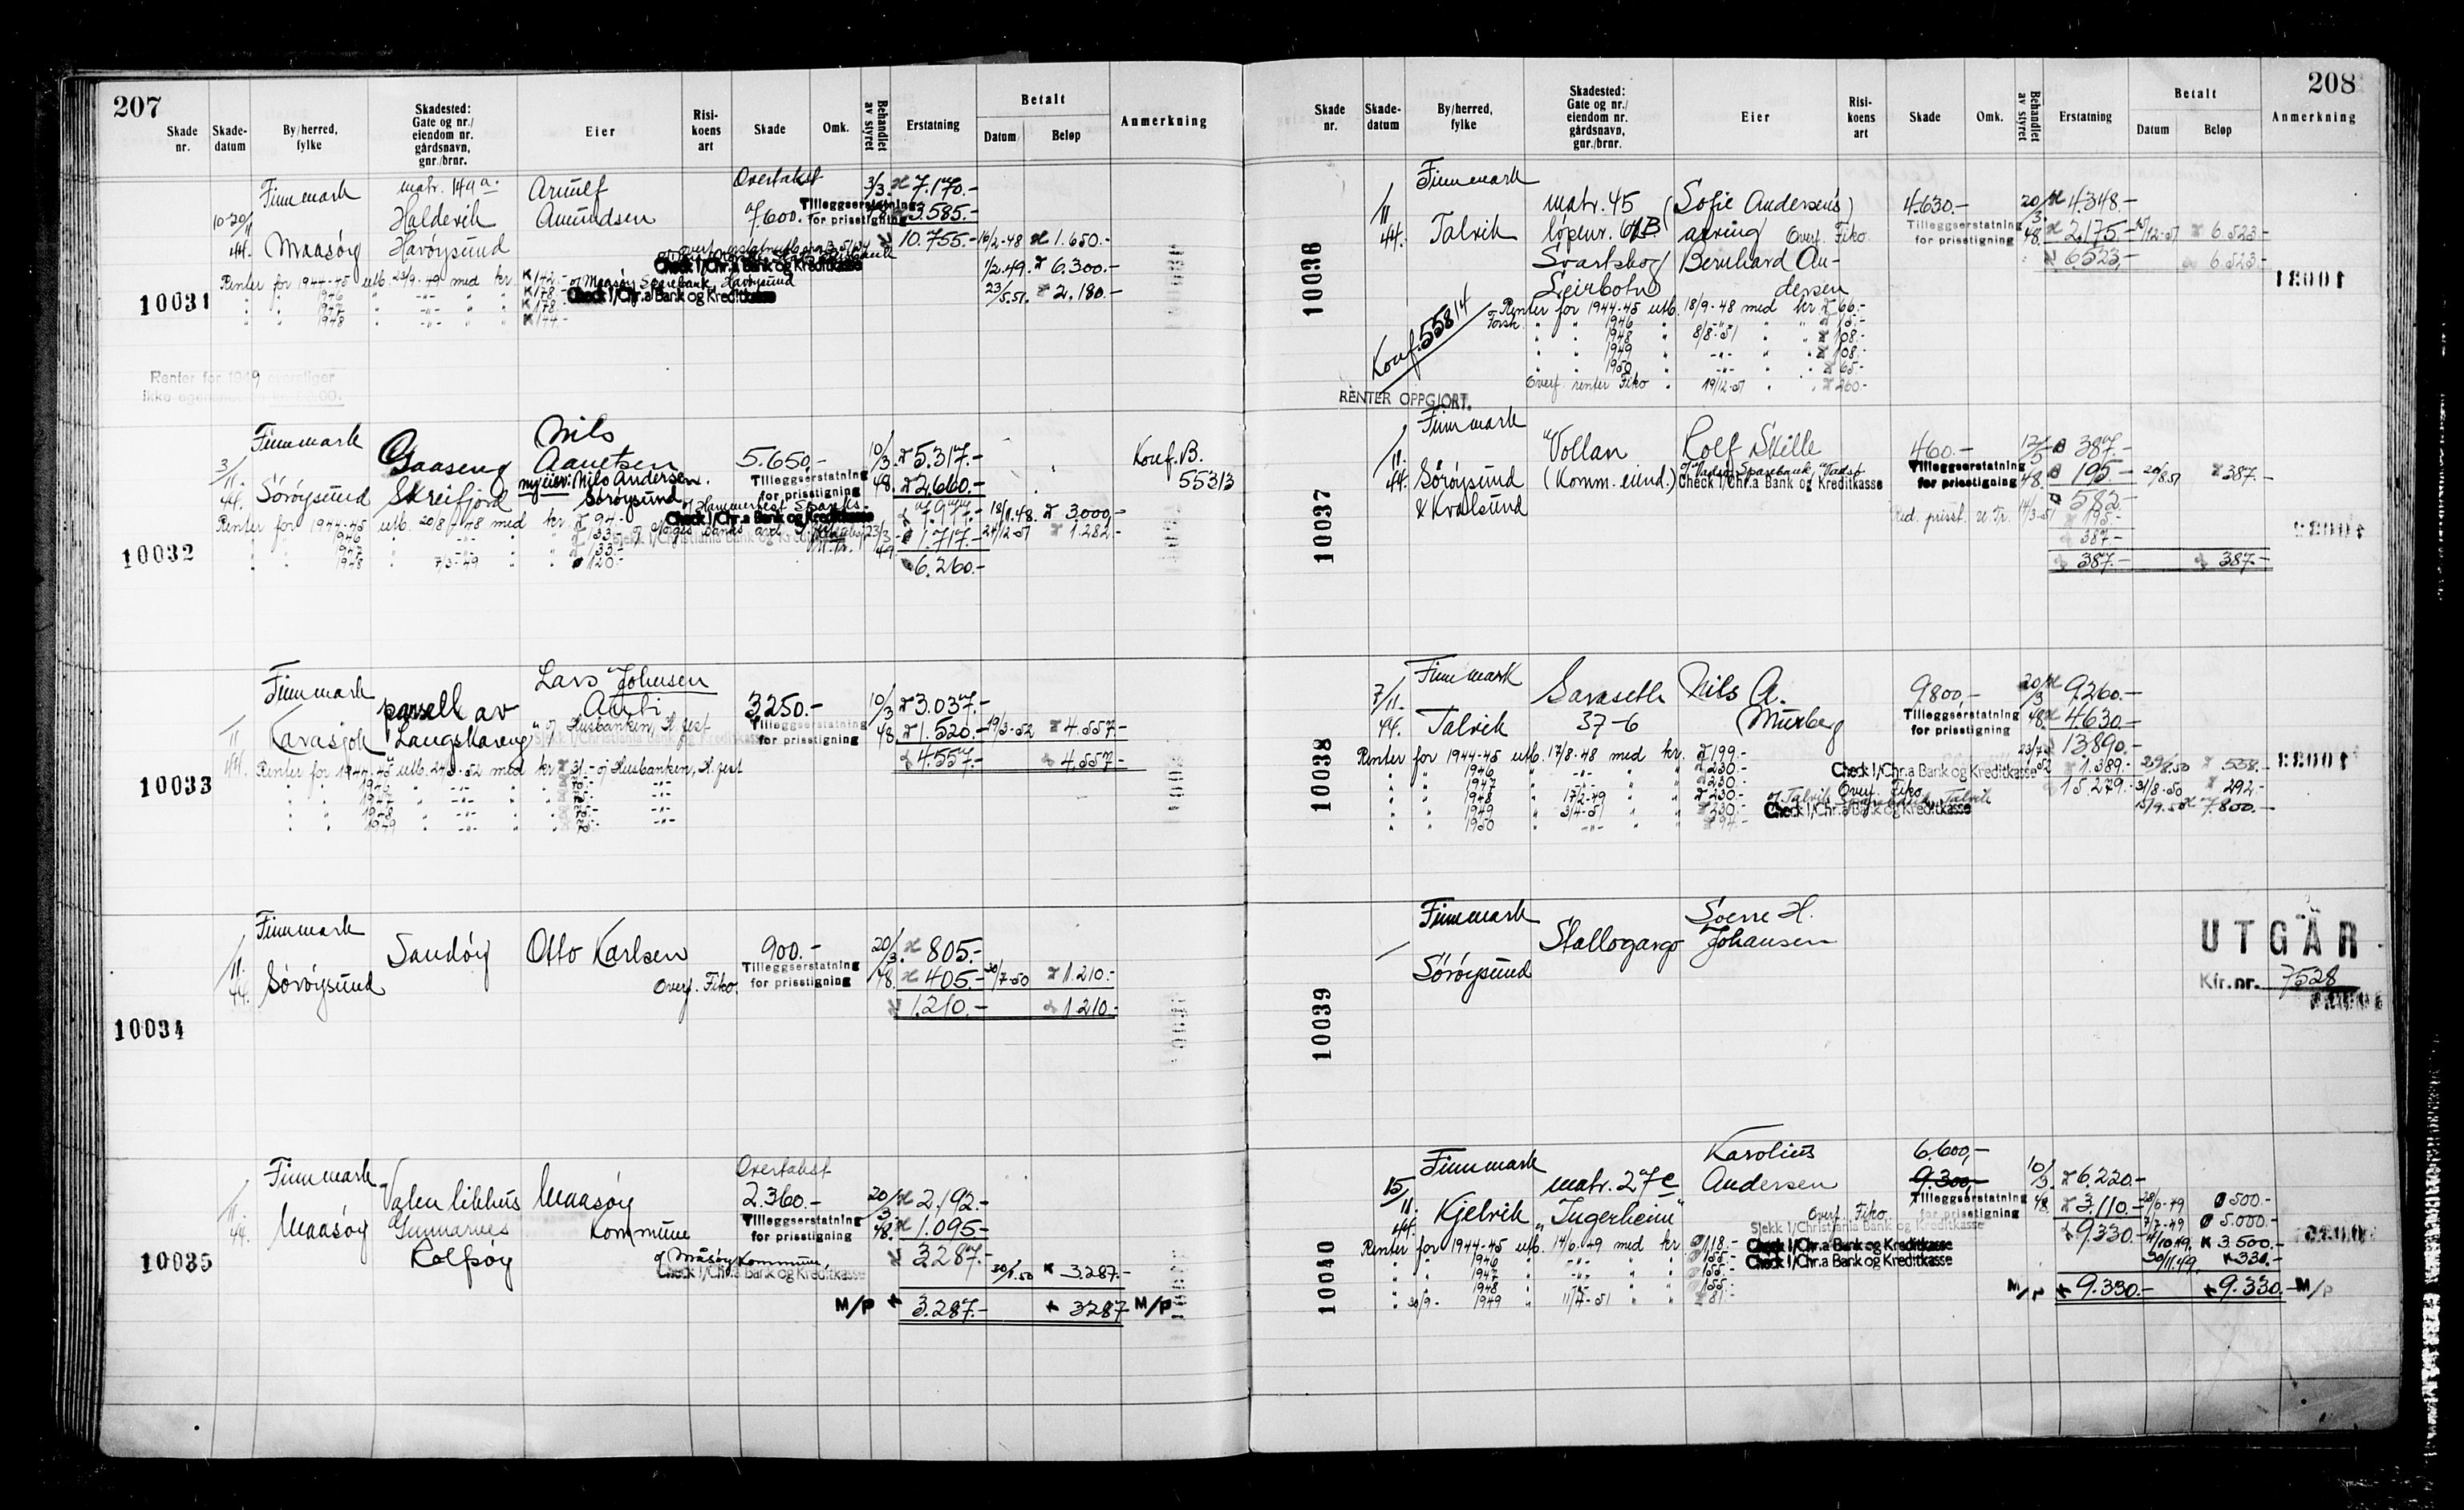 207
Skade nr.
Skade-datum
By/herred, fylke
Skadested: Gate og nr./ eiendom nr. gårdsnavn, gnr./brnr.
Eier
Risi-koens art
Skade
Omk.
Behandlet av styret
Erstatning
Betalt
Datum
Beløp
Anmerkning
10031
Finnmark matr. 149a. Arnulf Overtakst 3/3. 7.170.-
10-20/11 Haldevik Amundsen 7.600.- Tilleggserstatning for prisstigning 3.585.-
44. Maasøy Havøysund 10.755.- 16/2-48 1.650.-
Check 1/Chr.a Bank og Kreditkasse 1/2.49. 6.300.-
Renter for 1944-45 utb. 23/9-49 med kr. 142.- Maasøy Sparebank, Havøysund 23/5.51. 2.180.-
" " 1946 " -"- " " 178.- Check 1/Chr.a Bank og Kreditkasse
" " 1947 " -"- " " 178.-
" " 1948 " -"- " " 144.-
Renter for 1949
10032
Finnmark Gaaseng Nils
3/11. Aanetsen 5.650.- 10/3. 5.317.- Konf. B.
44. Sørøysund Skreifjord ny eier: Nils Andersen. Tilleggserstatning for prisstigning 48. 2.660.- 55313
Sørøysund
Hammerfest Spareb. 7.977.- 18/11.48. 3.000,-
Renter for 1944-45 utb. 20/8-48 med kr. 94.- Check 1/Chr.a Bank og Kreditkasse
" " 1946 " -"- " " 133.- 23/3- 1.717.- 24/12-51 1.282.-
" " 1947 " -"- " " 133.- 49
" " 1948 " 7/3-49 " " 120.- 6.260.-
10033
Finnmark Lars Johnsen
parsell av Anti 3250.- 10/3 3.037.-
11 Karasjok Langskareng Husbanken, H.fest Tilleggserstatning for prisstigning 48. 1.520.- 19/3-52 4.557.-
44. 4.557.- 4.557.-
Renter for 1944-45 utb. 24/3-52 med kr. 31.- Husbanken, H.fest
" " 1946 " -"- " " -"-
" " 1947 " -"- " " -"-
" " 1948 " -"- " " -"-
" " 1949 " -"- " " -"-
10034
Finnmark Sandøy Otto Karlsen 900.- 20/3. 805.-
11. Tilleggserstatning for prisstigning 48. 405.- 30/7-50 1.210.-
44. Sørøysund Overf. Fiko. 1.210.- 1.210.-
10035
Finnmark Valen likhus Maasøy Overtakst
11. 2.360.- 20/3 2.192.-
44. Maasøy Gunnarnes kommune Tilleggserstatning for prisstigning 48. 1.095.-
Rolfsøy Måsøy Kommune, 3.287.-
Check 1/Chr.a Bank og Kreditkasse 30/1.50 3.287.-
M/P 3.287.- 3287 M/P
208
Skade nr.
Skade-datum
By/herred, fylke
Skadested: Gate og nr./ eiendom nr. gårdsnavn, gnr./brnr.
Eier
Risi-koens art
Skade
Omk.
Behandlet av styret
Erstatning
Betalt
Datum
Beløp
Anmerkning
10036
Finnmark
11 matr. 45 (Sofie Andersens) 4.630.- 20/3. 4.348.-
44. Talvik løpenr. 61B arving Overf. Fiko. Tilleggserstatning for prisstigning 48. 2.175.- 15/12-51 6.523.-
Svartskog Bernhard An- 6523,- 6.523.-
Leirbotn dersen
Konf. 55814
Renter for 1944-45 utb. 18/9-48 med kr. 66.-
" " 1946 " -"- " " 15.-
" " 1948 " 8/8-51 " " 108.-
" " 1949 " -"- " " 108.-
" " 1950 " -"- " " 65.-
Overf. renter Fiko " 19/12-51 " " 260.-
RENTER OPPGJORT.
10037
Finnmark
11. Vollan Rolf Skille 460.- 12/5 387.-
44. Sørøysund (Komm. eiend.) Vadsø Sparebank, Vadsø Tilleggserstatning for prisstigning 48. 195.- 20/8.51 387.-
& Kvalsund Check 1/Chr.a Bank og Kreditkasse 582.-
Red. prisst. 14/3-51 195.-
387.-
387.- 387.-
10038
Finnmark
7/11. Saraseth Nils A. 9.800.- 20/3 9.260.-
44. Talvik 37-6 Murberg Tilleggserstatning for prisstigning 48. 4630.-
13.890.-
Renter for 1944-45 utb. 17/8-48 med kr. 199.- 1.389.- 558.-
" " 1946 " -"- " " 230.- Check 1/Chr.a Bank og Kreditkasse 15.279.- 31/8-50 292.-
" " 1947 " -"- " " 230.- Overf. Fiko 15/9.50 7.800.-
" " 1948 " 17/2-49 " " 230.- Talvik Sparebank, Talvik
" " 1949 " 3/4-51 " " 230.- Check 1/Chr.a Bank og Kreditkasse
" " 1950 " -"- " " 94.-
10039
Finnmark Stallogargo Soenne H.
Sørøysund Johansen
UTGÅR
Kfr. nr. 7528
10040
Finnmark Karolius 6.600,-
15/11. matr. 27e Andersen 9.300,- 10/3. 6.220.-
44. Kjelvik "Ingerheim" Overf. Fiko. Tilleggserstatning for prisstigning 48. 3.110.- 28/6-49 500.-
Sjekk 1/Christiania Bank og Kreditkasse 9.330.- 7/7-49 5.000.-
Renter for 1944-45 utb. 14/6-49 med kr. 118.- Check 1/Chr.a Bank og Kreditkasse 4/10.49. 3.500.-
" " 1946 " -"- " " 155.- Check 1/Chr.a Bank og Kreditkasse 30/11.49. 330.-
" " 1947 " -"- " " 155.-
" " 1948 " -"- " " 155.-
" 30/9- 1949 " 11/7-51 " " 81.- M/P 9.330.- 9.330.- M/P